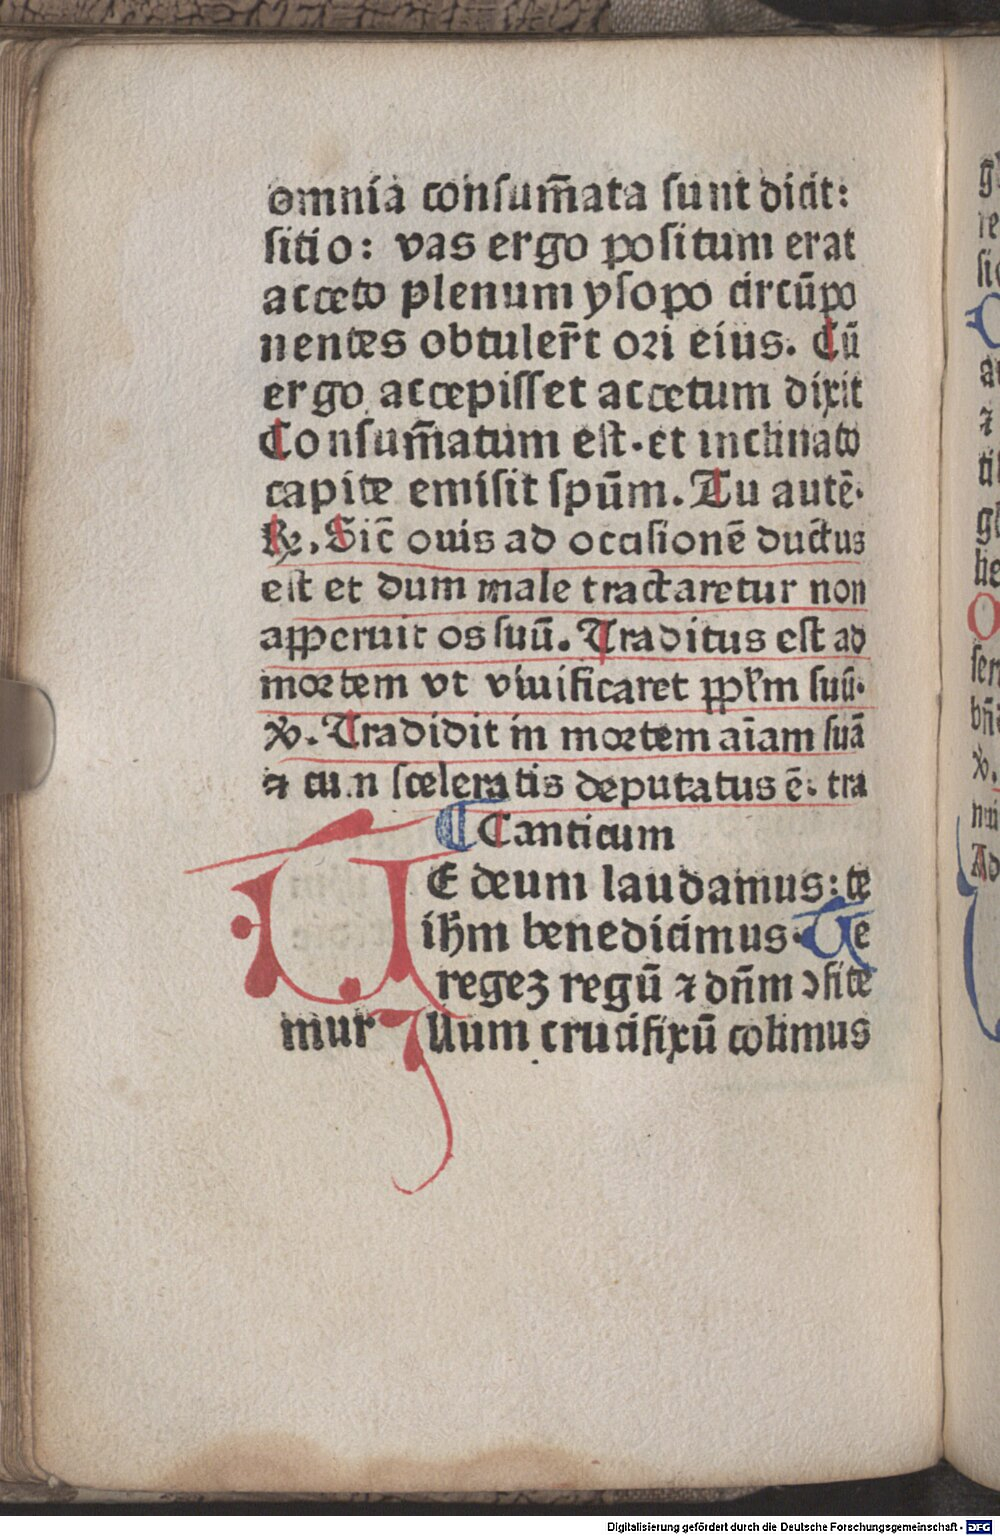 omnia consum̄ata sunt dicit:
sitio: vas ergo positum erat
acceto plenum ysopo circūpo
nentes obtuler̄t ori eius. Cū
ergo accepisset accetum dixit
Consum̄atum est. et inclinato
capite emisit spūm. Tu autē.
℟. Sic̄ ouis ad occisionē ductus
est et dum male tractaretur non
apperuit os suū. Traditus est ad
mortem vt viuificaret pplm suū.
℣. Tradidit in mortem aīam suā
⁊ cum sceleratis deputatus ē: tra
Canticum
TE deum laudamus: te
ihm benedicimus. Te
regeȝ regū ⁊ dn̄m ↄfite
mur Illum crucifixū colimus
Digitalisierung gefördert durch die Deutsche Forschungsgemeinschaft - DFG